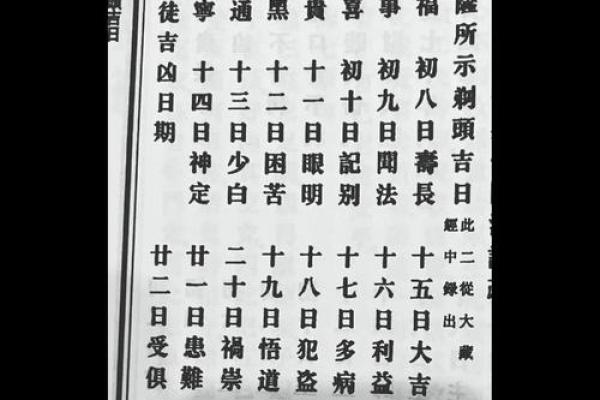 薩所示剃頭吉日 此二從大藏
經中録出
福 初八日壽長 十五日大吉
事 初九日聞法 十六日利益
喜 初十日記别 十七日多病
貴 十一日眼明 十八日犯盗
黑 十二日困苦 十九日悟道
通 十三日少白 二十日禍崇
寧 十四日神定 廿一日患難
徒吉凶日期 廿二日受俱
吉日